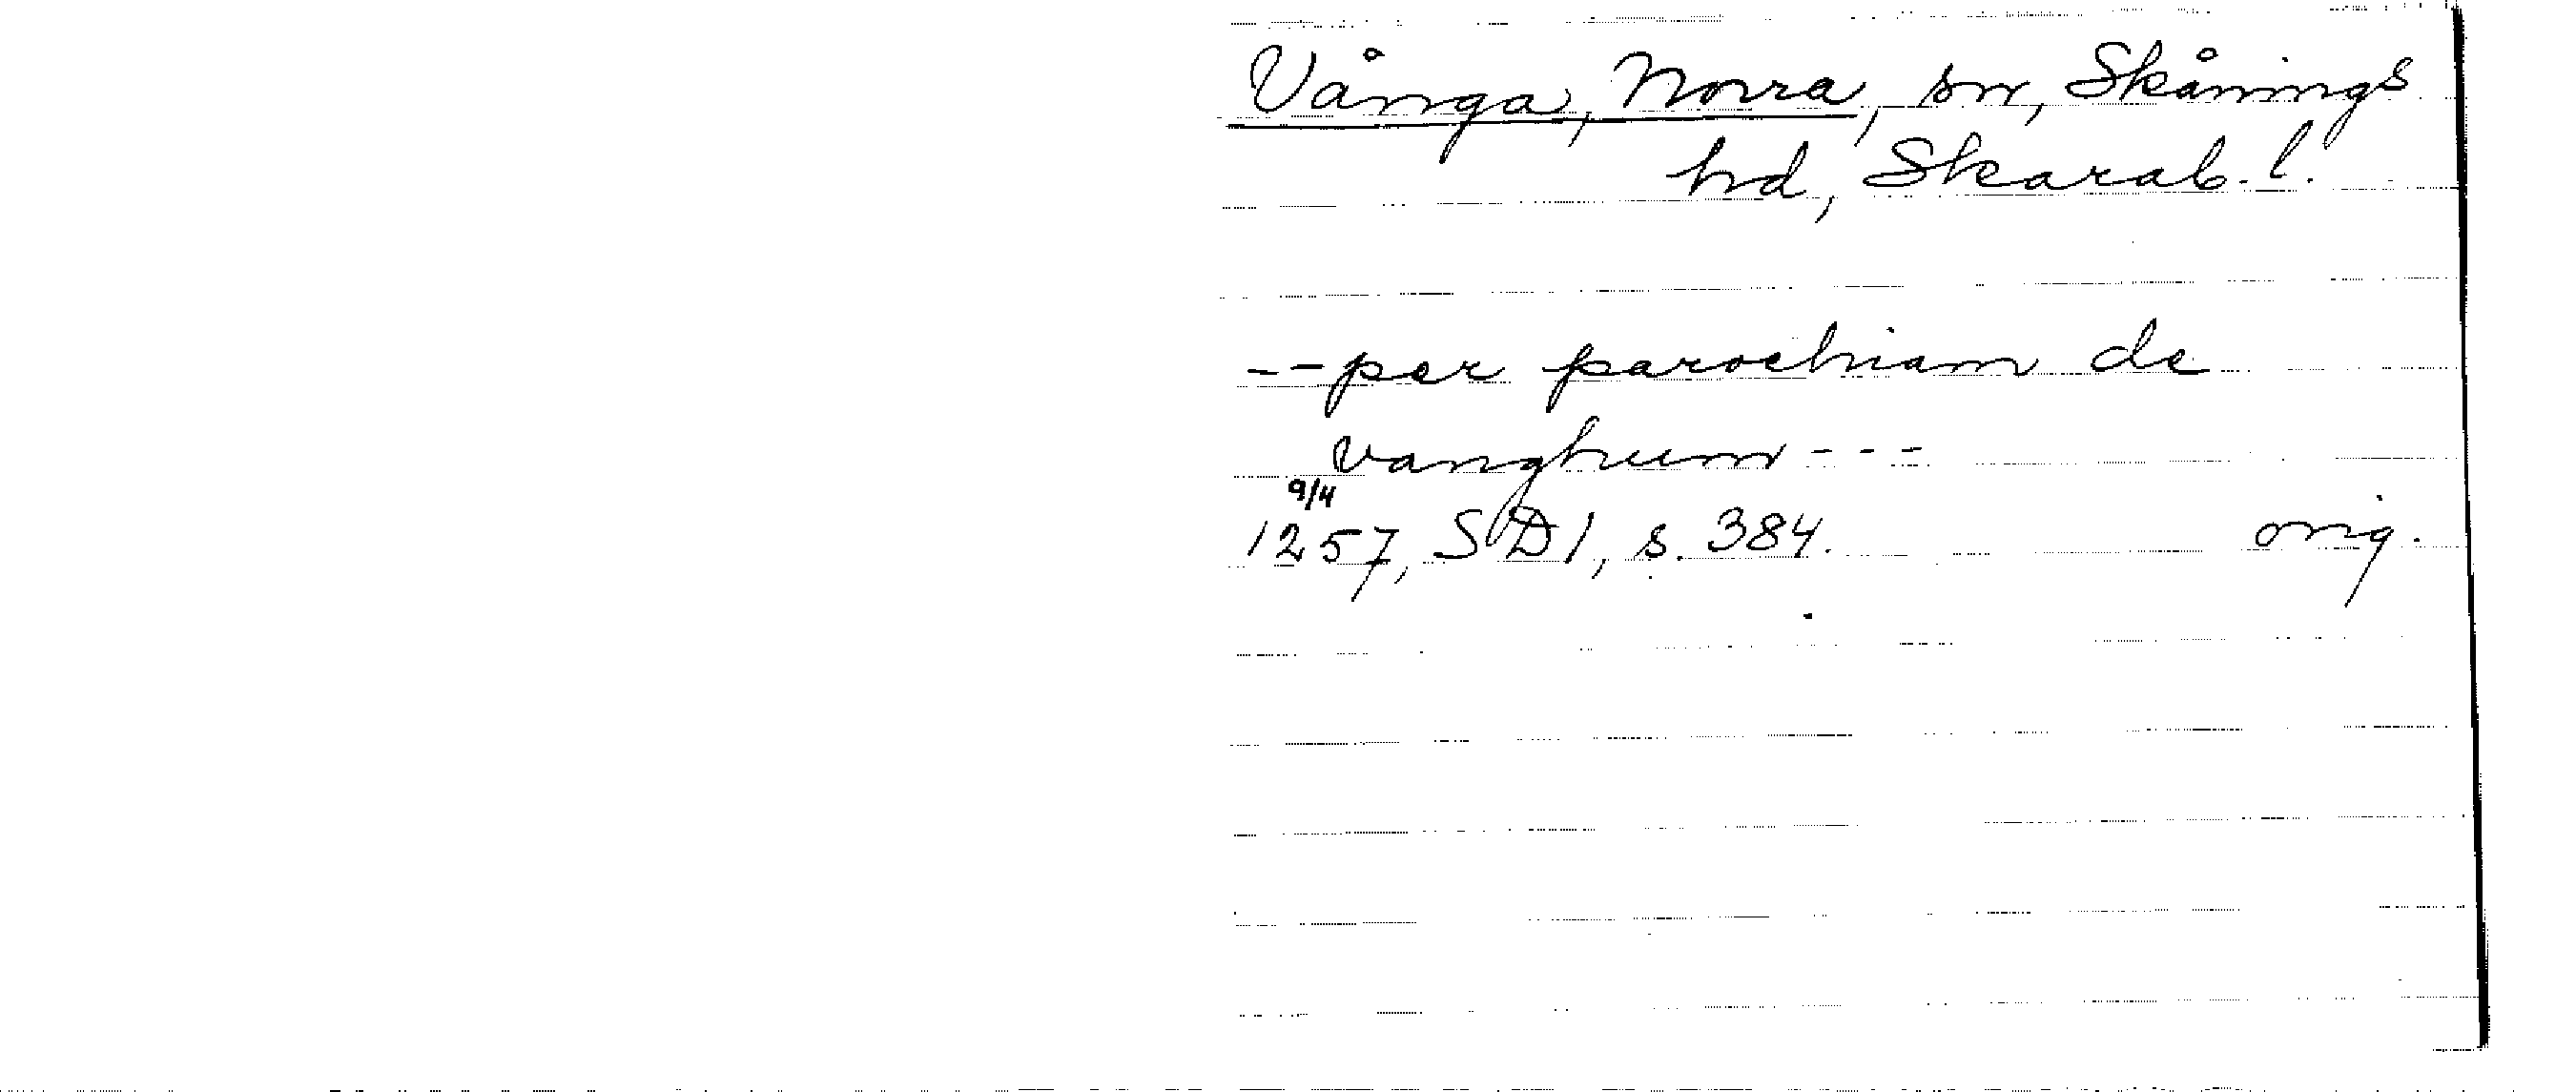 Vånga, Norra, sn, Skånings
hd, Skarab. l.
--per parochiam de
vanghum---
9/4
1257, SD1, s. 384. orig.